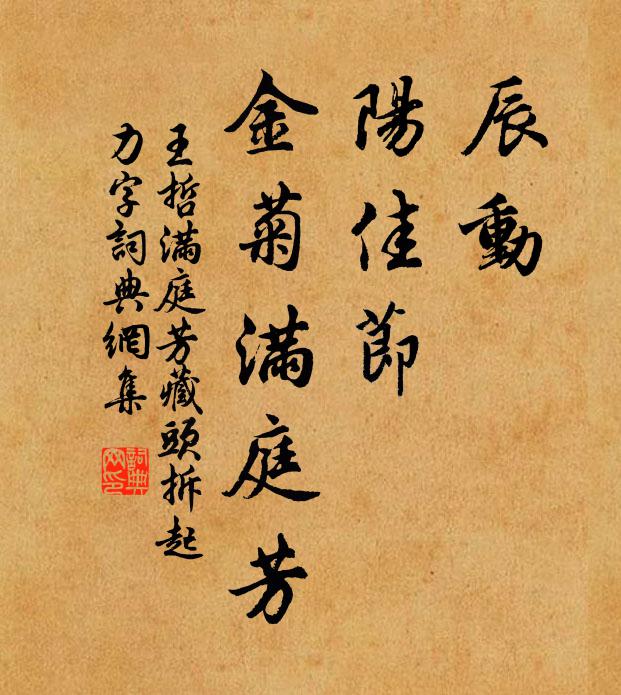 辰動
陽佳節
金菊滿庭芳
王哲滿庭芳藏頭拆起
力字詞典網集
詞典
网印